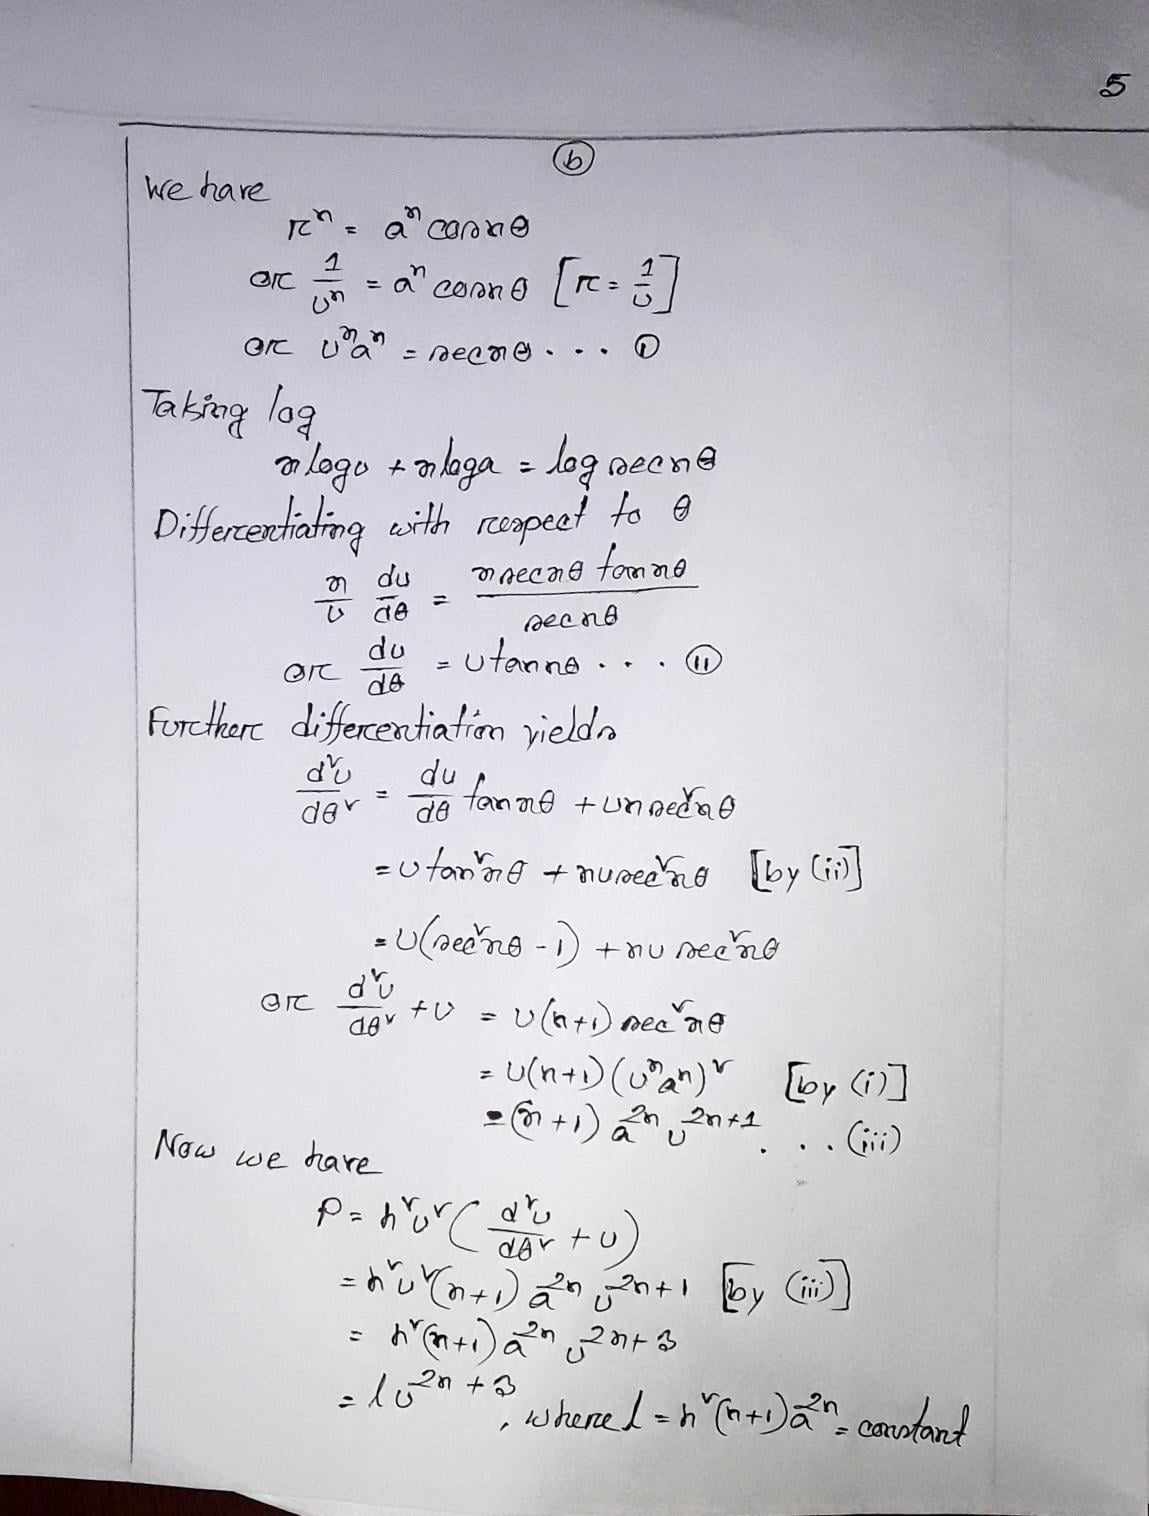 5
(b)
We have
rⁿ = aⁿ cos nθ
or 1/uⁿ = aⁿ cos nθ [r = 1/u]
or uⁿaⁿ = sec nθ . . . (i)
Taking log
n log u + n log a = log sec nθ
Differentiating with respect to θ
n/u du/dθ = n sec nθ tan nθ / sec nθ
or du/dθ = u tan nθ . . . (ii)
Further differentiation yields
d²u/dθ² = du/dθ tan nθ + un sec² nθ
= u tan² nθ + nu sec² nθ [by (ii)]
= u(sec² nθ - 1) + nu sec² nθ
or d²u/dθ² + u = u(n+1) sec² nθ
= u(n+1) (uⁿaⁿ)² [by (i)]
= (n+1) a²ⁿ u²ⁿ⁺¹ . . . (iii)
Now we have
P = h²u² (d²u/dθ² + u)
= h²u²(n+1) a²ⁿ u²ⁿ⁺¹ [by (iii)]
= h²(n+1) a²ⁿ u²ⁿ⁺³
= l u²ⁿ⁺³, where l = h²(n+1)a²ⁿ = constant